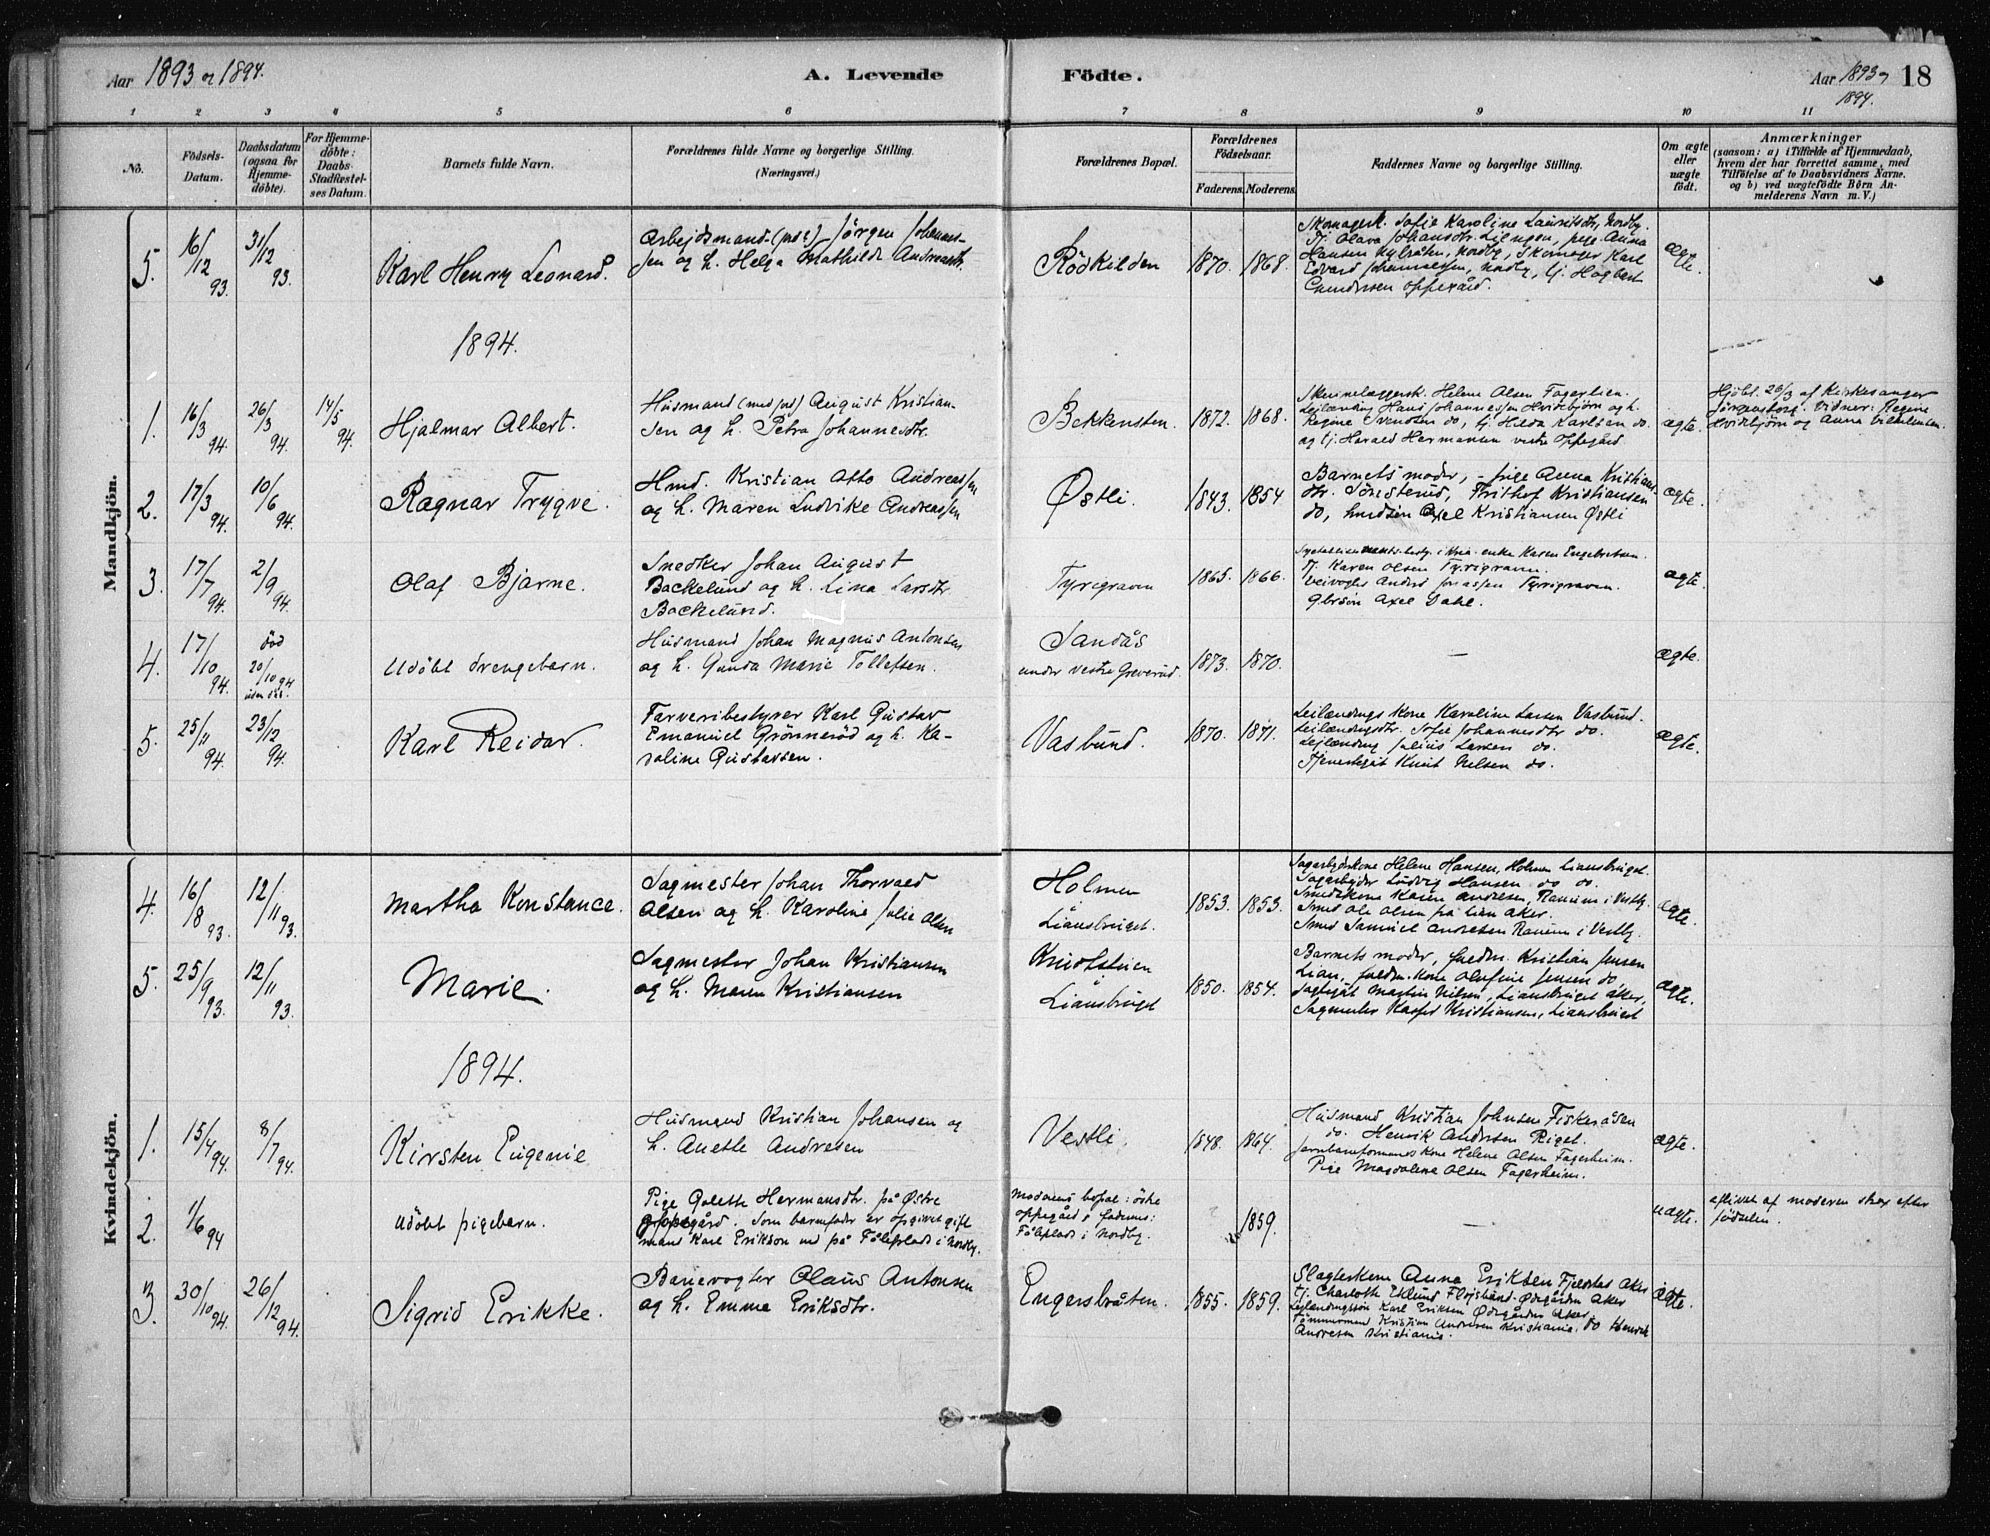 Aar 1893 og 1894.
A. Levende
Födte.
Aar 1893 og 1894.
18
1 2 3 4 5 6 7 8 9 10 11
No.
Födsels-Datum.
Daabsdatum (ogsaa for Hjemmedöbte).
For Hjemmedöbte: Daabs-Stadfæstelses Datum.
Barnets fulde Navn.
Forældrenes fulde Navne og borgerlige Stilling.
(Næringsvei.)
Forældrenes Bopæl.
Forældrenes Födselsaar.
Faderens. Moderens.
Faddernes Navne og borgerlige Stilling.
Om ægte eller uægte födt.
Anmærkninger
(saasom: a) i Tilfælde af Hjemmedaab,
hvem der har forrettet samme, med
Tilföielse af to Daabsvidners Navne.
og b) ved uægtefödte Börn An-
melderens Navn m. V.)
Mandkjön.
5. 16/12 93. 31/12 93. Karl Henry Leonard.
Arbejdsmand Jörgen Johannes-
sen og h. Helga Mathilde Andreasdtr.
Rödkilden 1870. 1868.
Skomagersk. Sofie Karoline Lauritsdtr, Nordby.
Tj. Olava Johansdtr. pige Anna
Hansen Nordby, Skomager Karl
Edvard Johannessen, Nordby, tj. Hagbart
Oppegård.
ægte.
1894.
1. 16/3 94. 26/3 94. 14/5 94. Hjalmar Albert.
Husmand (med jord) August Kristian-
sen og h. Petra Johannesdtr.
Bekkensten. 1872. 1868.
Helene Olsen Fagerlien.
Leilænding Hans Johannessen Hvidebjörn og h.
Regine Svendsen do, tj. Hilda Karlsen do.
og tj. Harald Hermansen vestre Oppegård.
ægte.
Hjdbt. 26/3 af Kirkesanger
Jörgensborg. Vidner: Regine
Hvidebjörn og Anna Vilhelmsen.
2. 17/3 94. 10/6 94. Ragnar Trygve.
Hmd. Kristian Otto Andreassen
og h. Maren Ludvike Andreassen
Østli 1843. 1854.
Barnets moder, - pige Anna Kristians-
dtr. Sönsterud, Frithof Kristiansen
do, Axel Kristiansen Østli
ægte.
3. 17/7 94. 2/9 94. Olaf Bjarne.
Snedker Johan August
Backelund og h. Lina Larsdtr.
Backelund.
Tyrigraven 1865. 1866.
enke Karen Engebretsen.
Tj. Karen Olsen Tyrigraven.
Veivogter Anders Jonassen Tyrigraven.
Axel Dahl.
ægte.
4. 17/10 94. död 20/10 94 uden dåb. Udöbt drengebarn.
Husmand Johan Magnus Antonsen
og h. Gunda Marie Tollefsen.
Sandås
under vestre Greverud. 1873. 1870.
—
ægte.
5. 25/11 94. 23/12 94. Karl Reidar.
Farveribestyrer Karl Gustav
Emanuel Grönneröd og h. Ka-
roline Gustavsen.
Vasbund. 1870. 1871.
Leilændings kone Karoline Larsen Vasbund.
Leilændingsdtr. Sofie Johannesdtr do.
Leilænding Julius Larsen do.
Tjenestegut Knut Nelsen do.
ægte.
Kvindekjön.
4. 16/8 93. 12/11 93. Martha Konstance.
Sagmester Johan Thorvald
Olsen og h. Karoline Julie Olsen
Holmen
Liansbruget. 1853. 1853.
Sagarbejderkone Helene Hansen, Holmen Liansbruget.
Sagarbejder Ludvig Hansen do do.
Smedskone Karen Andresen, Ramm i Vestby.
Smed Ole Olsen på Lian Aker.
Smed Samuel Andresen Ramm i Vestby.
ægte.
5. 25/9 93. 12/11 93. Marie.
Sagmester Johan Kristiansen
og h. Maren Kristiansen
Liansbruget 1850. 1854.
Barnets moder, Kristian Jensen
Lian, kone Olufine Jensen do,
Martin Nilsen, Liansbruget Aker,
Sagmester Kasper Kristiansen, Liansbruget
ægte.
1894.
1. 15/4 94. 8/7 94. Kirsten Eugenie
Husmand Kristian Johansen og
h. Anette Andresen
Vestli. 1848. 1864.
Husmand Kristian Johnsen Fiskeråsen
do. Henrik Andersen Riget.
Jernbaneformands kone Helene Olsen Fagerheim.
Pige Magdalene Olsen Fagerheim.
ægte.
2. 1/6 94 Udöbt pigebarn.
Pige Golette Hermansdtr. på Østre
Oppegård. Som barnefader er opgivet gift
mand Karl Erikson på Fåleplads i Nordby.
Moderens bopæl: östre
Oppegård, faderens:
Fåleplads i Nordby.
? 1859.
—
uægte.
aflivet af moderen strax efter
födselen.
3. 30/10 94. 26/12 94. Sigrid Erikke.
Banevogter Olaus Antonsen
og h. Emma Eriksdtr.
Engersbråten. 1855. 1859.
Slagterkone Anna Eriksen Fjelstad Aker
tj. Charlotte Eklund Ødegården Aker
Leilændingssön Karl Eriksen Ødegården Aker.
Tömmermand Kristian Andresen Kristiania. do Henrik
Andresen Kristiania.
ægte.